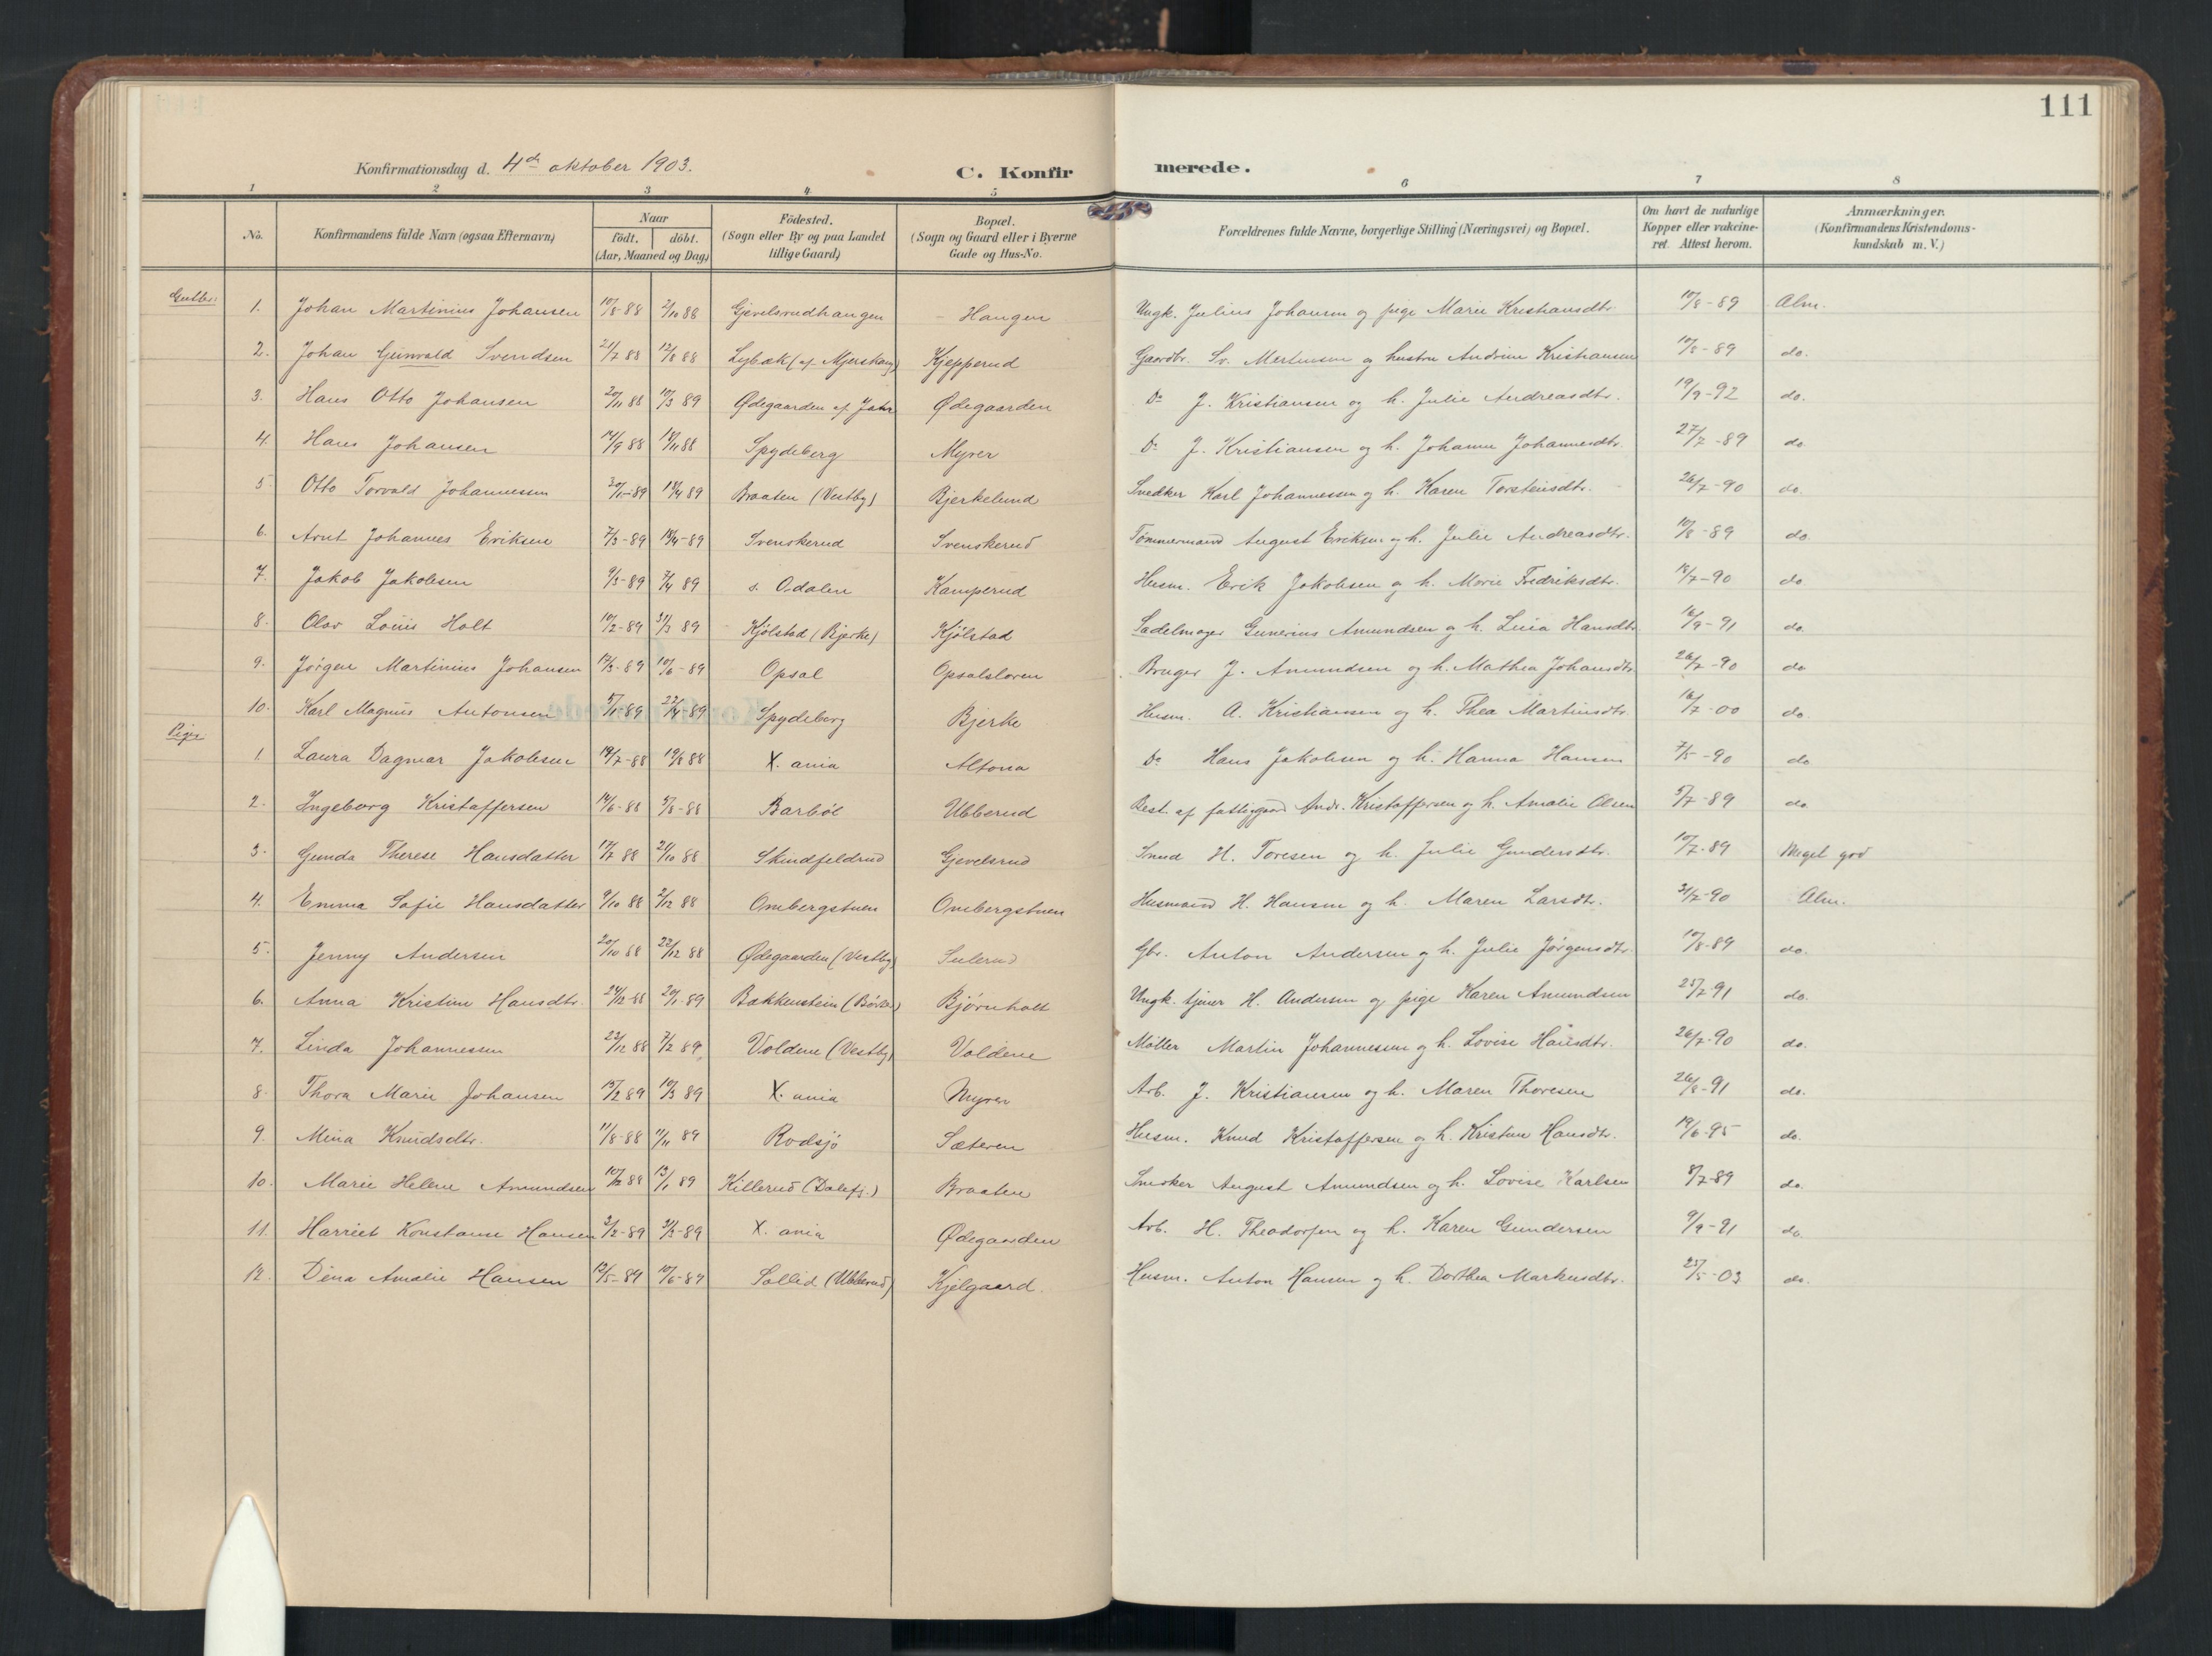 111
Konfirmationsdag d. 4de oktober 1903. C. Konfirmerede.
1 2 3 4 5 6 7 8
No. Konfirmandens fulde Navn (ogsaa Efternavn) Naar født. døbt. (Aar, Maaned og Dag) Födested. (Sogn eller By og paa Landet tillige Gaard) Bopæl. (Sogn og Gaard eller i Byerne Gade og Hus-No. Forældrenes fulde Navne, borgerlige Stilling (Næringsvei) og Bopæl. Om havt de naturlige Kopper eller vakcineret. Attest herom. Anmærkninger. (Konfirmandens Kristendomskundskab m. V.)
Gutter:
1. Johan Martinius Johansen 10/8-88 2/10 88 Gjevelsrudhaugen Haugen Ungk. Julius Johansen og pige Marie Kristiansdtr. 10/8-89 Alm.
2. Johan Gunvald Svendsen 21/7 88 12/8 88 Lybæk (af Mjerskaug) Kjepperud Gaardbr. Sv. Mertinsen og hustru Andrine Kristiansen 10/8-89 do.
3. Hans Otto Johansen 20/11 88 10/3 89 Ødegaarden af Jahr Ødegaarden Do J. Kristiansen og h. Julie Andreasdtr. 19/9-92 do.
4. Hans Johansen 14/9 88 18/11 88 Spydeberg Myrer Do J. Kristiansen og h. Johanne Johannesdtr. 27/7-89 do
5 Otto Torvald Johannessen 20/1-89 14/4 89 Braaten (Vestby) Bjerkelund Snedker Karl Johannessen og h. Karen Torsteinsdtr. 26/7-90 do.
6. Arnt Johannes Eriksen 7/3-89 14/4-89 Svenskerud Svenskerud Tömmermand August Eriksen og h. Julie Andreasdtr. 10/8-89 do.
7. Jakob Jakobsen 9/3-89 7/4 89 s. Odalen Kamperud Husm. Erik Jakobsen og h. Marie Fredriksdtr. 18/7-90 do
8. Olav Louis Holt 10/2-89 31/3 89 Kjølstad (Bjerke) Kjølstad Sadelmager Gunerius Amundsen og h. Lina Hansdtr 16/9-91 do.
9. Jørgen Martinius Johansen 17/3-89 10/6-89 Opsal Opsalsloven Bruger J. Amundsen og h. Mathea Johansdtr 26/7-90 do
10. Karl Magnus Antonsen 5/11 89 22/4-89 Spydeberg Bjerke Husm. A. Kristiansen og h. Thea Martinsdtr. 16/7-00 do.
Piger
1. Laura Dagmar Jakobsen 14/7-88 19/8 88 X.ania Altona Do Hans Jakobsen og h. Hanna Hansen 7/5-90 do
2. Ingeborg Kristoffersen 14/6-88 5/8-88 Barbøl Ubberud Best. af fattiggaard Andr. Kristoffersen og h. Amalie Olsen 5/7-89 do.
3. Gunda Therese Hansdatter 17/7 88 21/10 88 Skindfeldrud Gjevelsrud Smed H. Toresen og h. Julie Gundersdtr. 10/7-89 Meget god
4. Emma Sofie Hansdatter 9/10 88 2/12 88 Ombergstuen Ombergstuen Husmand H. Hansen og h. Maren Larsdtr. 31/7-90 Alm.
5. Jenny Andersen 20/10 88 22/12 88 Ødegaarden (Vestby) Sulerud Gbr. Anton Andersen og h. Julie Jørgensdtr. 10/8-89 do.
6. Anna Kristine Hansdtr. 24/12-88 20/1-89 Bakkenstein Bjørnholt Ungk. tjener H. Andersen og pige Karen Amundsen 25/7-91 do.
7. Linda Johannessen 22/12 88 7/2 89 Voldene (Vestby) Voldene Møller Martin Johannesen og h. Lovise Hansdtr. 26/7-90 do.
8. Thora Marie Johansen 15/2 89 10/3 89 X.ania Myrer Arb. J. Kristiansen og h. Maren Thoresen 26/8-91 do.
9. Mina Knudsdtr. 11/8-88 11/11 89 Rodsjø Sæteren Husm. Knud Kristoffersen og h. Kristine Hansdtr. 19/6-95 do.
10. Marie Helene Amundsen 10/12 88 13/1 89 Killerud (Dalefj.) Braaten Snedker August Amundsen og h. Lovise Karlsen 5/7-89 do.
11. Harriet Konstanse Hansen 2/2-89 3/3-89 X.ania Ødegaarden Arb. H. Theodorsen og h. Karen Gundersen 9/9-91 do.
12. Dina Amalie Hansen 12/5-89 10/6-89 Sollid (Ubberud) Kjelgaard. Husm. Anton Hansen og h. Dorthea Markusdtr. 25/5-03 do.